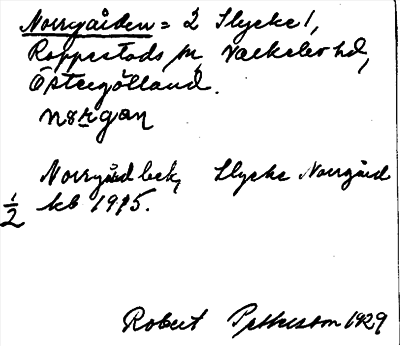 Norrgården = 2 Slycke 1,
Rappestads sn, Valkebo hd,
Östergötland.
Norrgård bek, Slycke Norrgård
1/2 kb 1915.
Robert Pettersson 1929